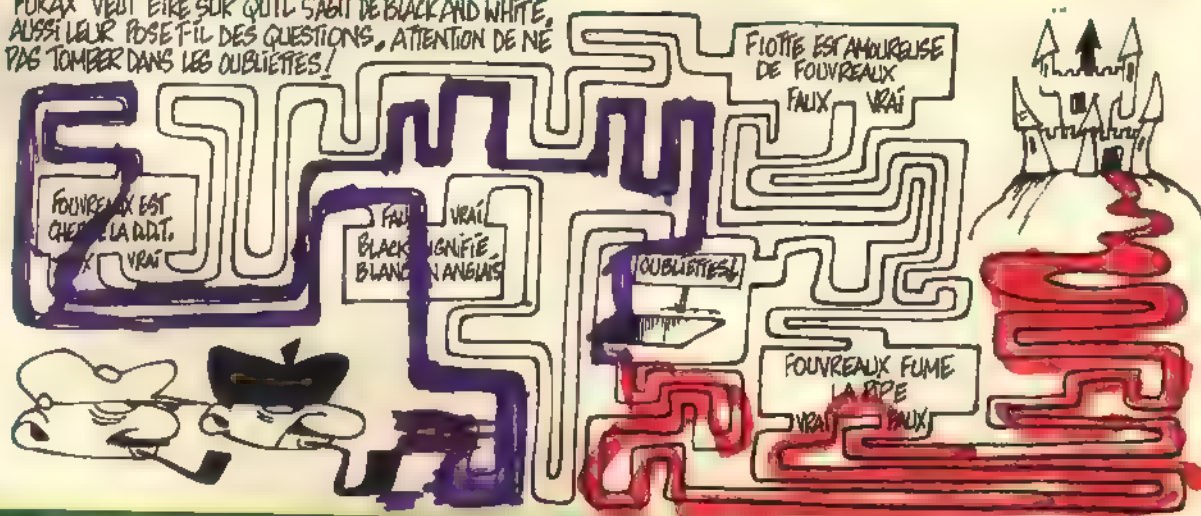 FURAX VEUT ETRE SUR QU'IL S'AGIT DE BLACK AND WHITE.
AUSSI LEUR POSE T-IL DES QUESTIONS. ATTENTION DE NE
PAS TOMBER DANS LES OUBLIETTES!
FIOTTE EST AMOUREUSE
DE FOUVREAUX
FAUX VRAI
FOUVREAUX EST
LA D.D.T.
VRAI
VRAI
BLACK SIGNIFIE
BLANC EN ANGLAIS
OUBLIETTES!
FOUVREAUX FUME
LA PIPE
VRAI FAUX